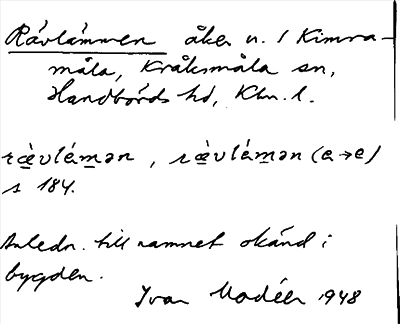 Rävlämmen åker n. 1 Kimra-
måla, Kråksmåla sn,
Handbörds hd, Klm. l.
rævlémən, rævlémən (a→e)
s 184.
Anledn. till namnet okänd i
bygden.
Ivar Modéer 1948